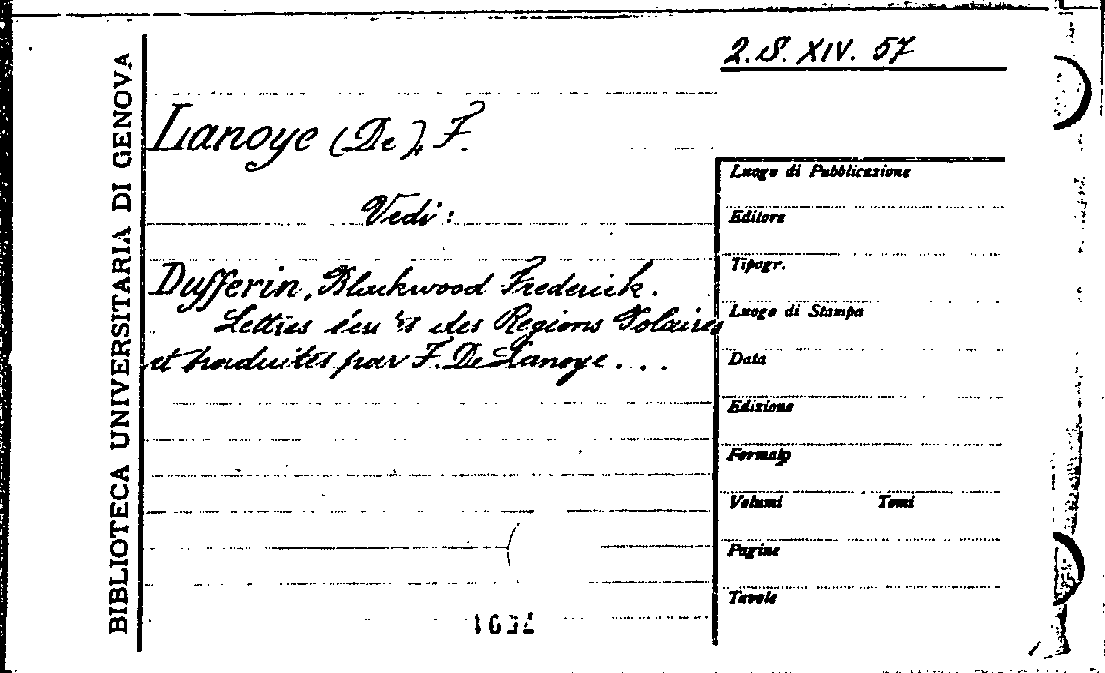 2.S. XIV. 57
BIBLIOTECA UNIVERSITARIA DI GENOVA
Lanoye (De), F.
Vedi:
Dufferin, Blackwood Frederick.
Lettres des Regions Solaires
et traduites par F. De Lanoye...
Luogo di Pubblicazione
Editore
Tipogr.
Luogo di Stampa
Data
Edizione
Formato
Volumi Tomi
Pagine
Tavole